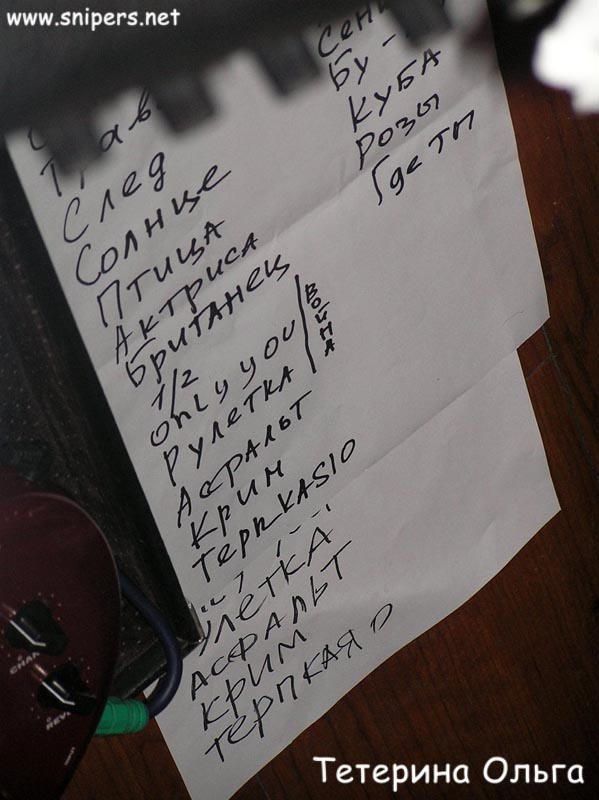 www.snipers.net
Трав
След
Солнце
Птица
Актриса
Британец
1/2
only you
Рулетка
Асфальт
Крим
Война
Бу-
Куба
Розы
Где ТП
улетка
Асфальт
Крим
Терпкая
Тетерина Ольга